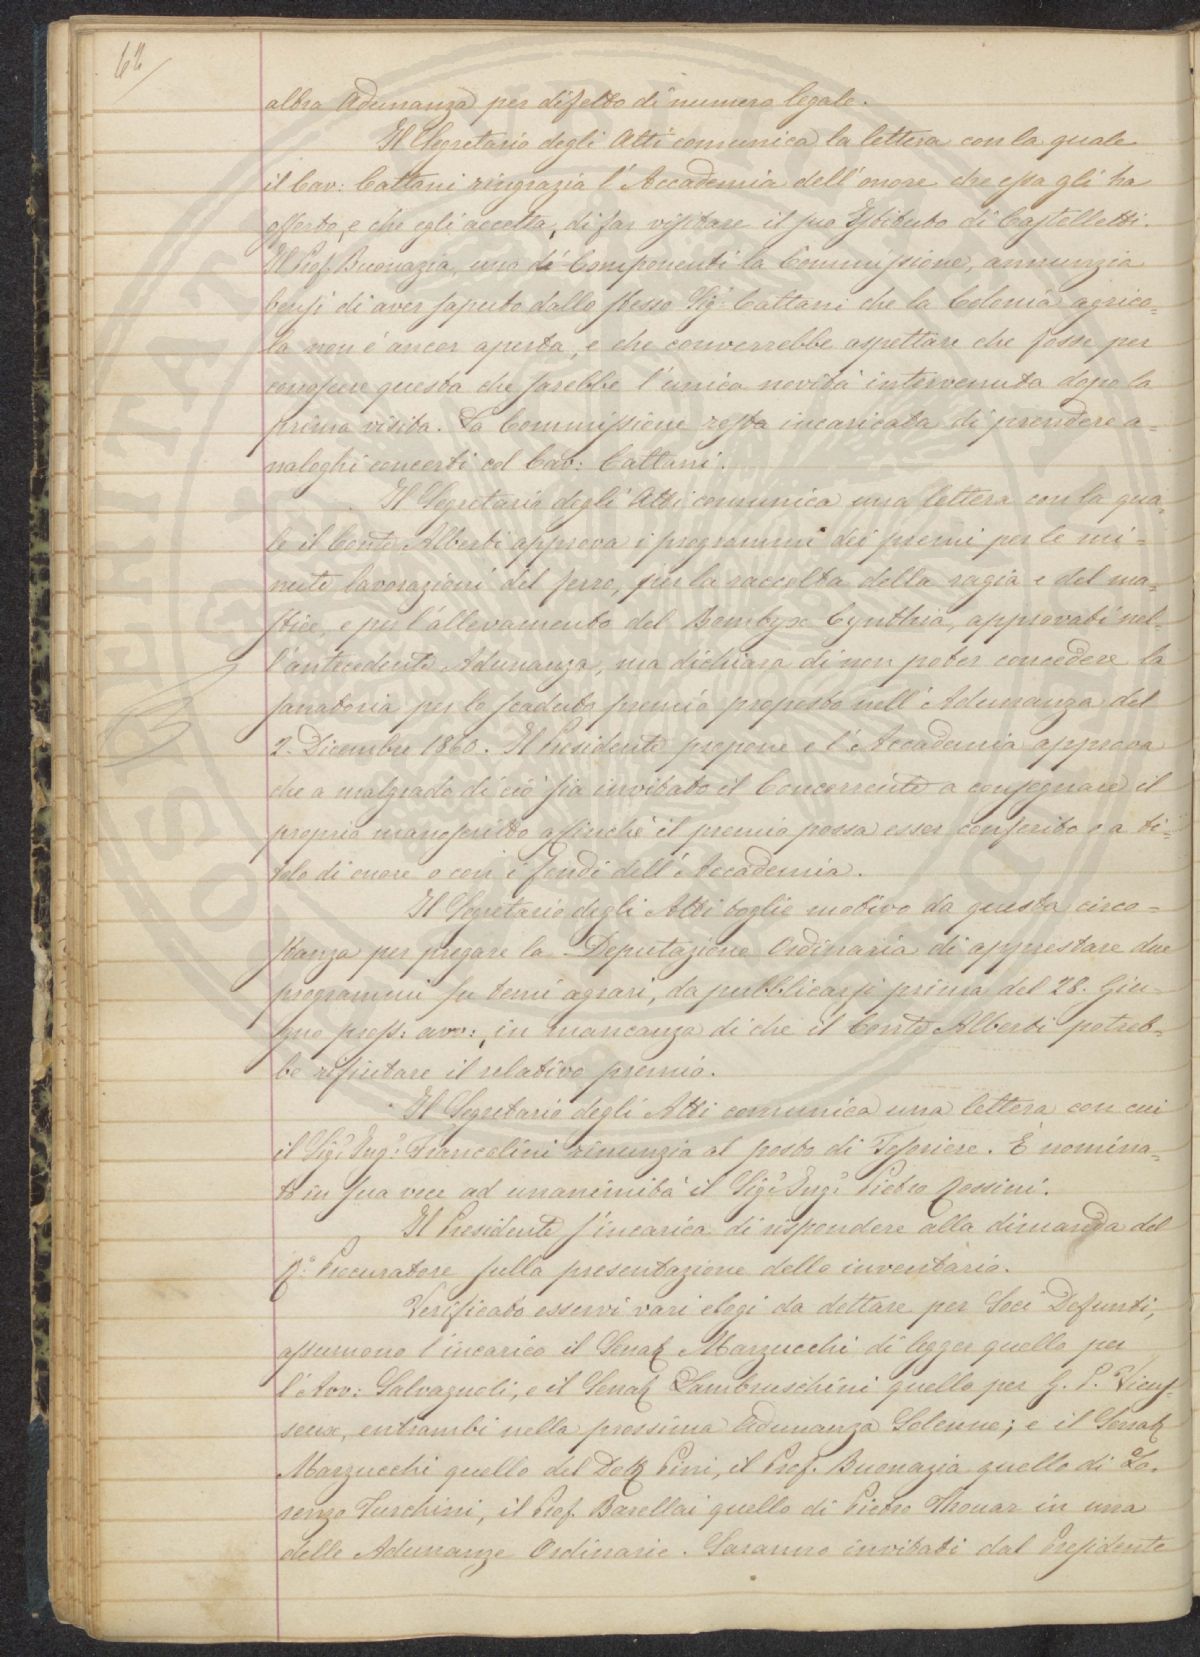 62
altra Adunanza per difetto di numero legale.
Il Segretario degli Atti comunica la lettera con la quale
il Cav: Cattani ringrazia l'Accademia dell'onore che essa gli ha
offerto, e che egli accetta, di far visitare il suo Istituto di Castelletti.
Il Prof. Buonazia, uno di Componenti la Commissione, annunzia
bensi di aver saputo dallo stesso Sig.r Cattani che la Colonia agrico=
la non é ancor aperta, e che converrebbe aspettare che fosse per
conoscere questa che sarebbe l'unica novità intervenuta dopo la
prima visita. La Commissione resta incaricata di prendere a=
naloghi concerti col Cav: Cattani.
Il Segretario degli Atti comunica una lettera con la qua=
le il Conte Alberti approva i programmi dei premi per le mi=
nute lavorazioni del ferro, per la raccolta della ragia e del ma=
stice, e per l'allevamento del Bombyx Cynthia, approvati nel=
l'antecedente Adunanza, ma dichiara di non poter concedere la
sanatoria per lo scaduto premio proposto nell'Adunanza del
2. Dicembre 1860. Il Presidente propone e l'Accademia approva
che a malgrado di ciò sia invitato il Concorrente a consegnare il
proprio manoscritto affinché il premio possa esser conferito o a ti=
tolo di onore o con i fondi dell'Accademia.
Il Segretario degli Atti toglie motivo da questa circo=
stanza per pregare la Deputazione Ordinaria di apprestare due
programmi su temi agrari, da pubblicarsi prima del 28. Giu=
gno pross: avv:, in mancanza di che il Conte Alberti potreb=
be rifiutare il relativo premio.
Il Segretario degli Atti comunica una lettera con cui
il Sig.r Ing.r Francolini rinunzia al posto di Tesoriere. È nomina=
to in sua vece ad unanimità il Sig.r Ing.r Pietro Rossini.
Il Presidente s'incarica di rispondere alla dimanda del
R.o Procuratore sulla presentazione dello inventario.
Verificato esservi vari elogi da dettare per Soci Defunti,
assumono l'incarico il Senat. Marzucchi di legger quello per
l'Avv: Salvagnoli, e il Senat. Lambruschini quello per G. P. Vieus=
seux, entrambi nella prossima Adunanza Solenne; e il Senat.
Marzucchi quello del Dott. Pini, il Prof. Buonazia quello di Lo=
renzo Turchini, il Prof. Barellai quello di Pietro Thouar in una
delle Adunanze Ordinarie. Saranno invitati dal Presidente